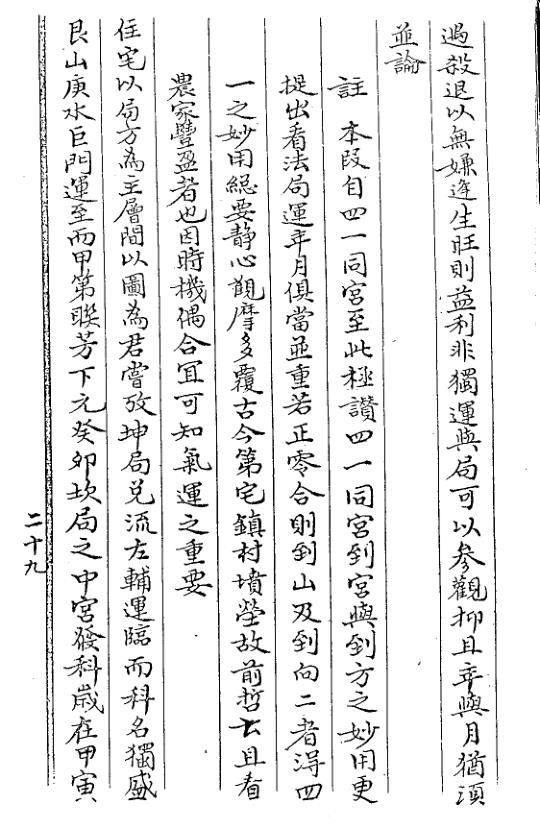 遇殺退以無嫌逢生旺則益利非獨運與局可以參觀抑且年與月猶須
並論
註　本段自四一同宮至此極讚四一同宮到宮與到方之妙用更
提出看法局運年月俱當並重若正零合則到山及到向二者淂四
一之妙用緫要静心觀摩多覆古今第宅鎮村墳塋故前哲云且看
農家豐盈者也因時機偶合冝可知氣運之重要
住宅以局方為主層間以圖為君當攷坤局兌流左輔運臨而科名獨盛
艮山庚水巨門運至而甲第聯芳下元癸卯坎局之中宮發科歲在甲寅
二十九